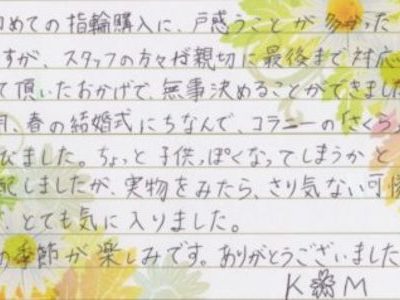 初めての指輪購入に、戸惑うことが多かった
すが、スタッフの方々が親切に最後まで対応
て頂いたおかげで、無事決めることができました
月、春の結婚式にちなんで、コラニーの「さくら」
びました。ちょっと子供っぽくなってしまうかと
配しましたが、実物をみたら、さり気ない可
、とても気に入りました。
の季節が楽しみです。ありがとうございました
K M